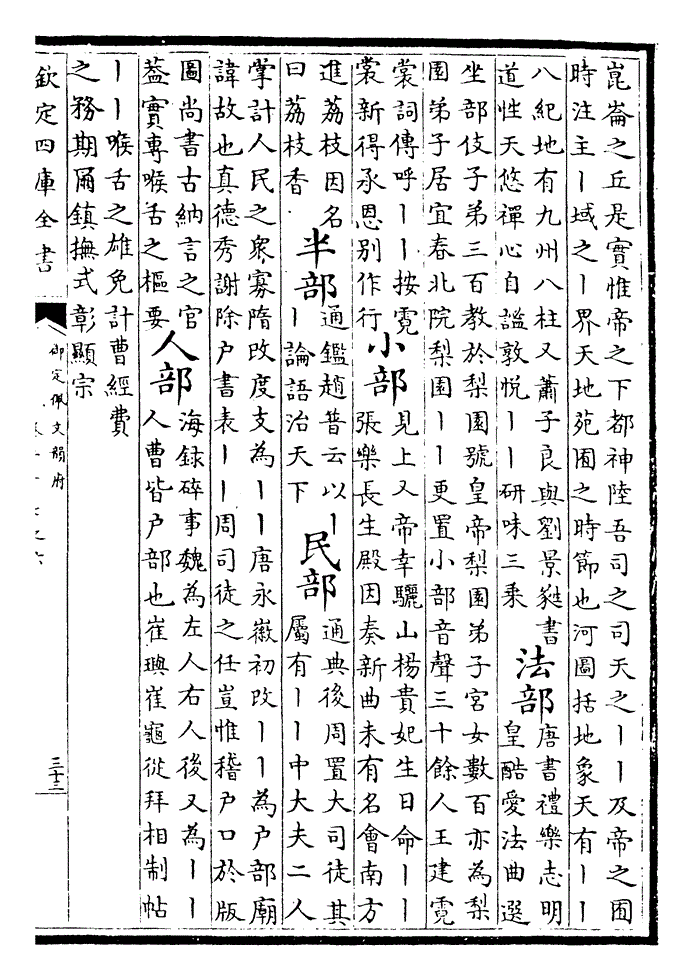 崑崙之丘是實惟帝之下都神陸吾司之司天之丨丨及帝之囿
時注主丨域之丨界天地苑囿之時節也河圖括地象天有丨丨
八紀地有九州八柱又蕭子良與劉景蕤書
道性天悠禪心自謐敦悅丨丨研味三乘
法部
唐書禮樂志明
皇酷愛法曲選
坐部伎子弟三百教於梨園號皇帝梨園弟子宮女數百亦為梨
園弟子居宜春北院梨園丨丨更置小部音聲三十餘人王建霓
裳詞傳呼丨丨按霓
裳新得承恩別作行
小部
見上又帝幸驪山楊貴妃生日命丨丨
張樂長生殿因奏新曲未有名會南方
進荔枝因名
曰荔枝香
半部
通鑑趙普云以丨
丨論語治天下
民部
通典後周置大司徒其
屬有丨丨中大夫二人
掌計人民之衆寡隋改度支為丨丨唐永徽初改丨丨為戶部廟
諱故也真德秀謝除戶書表丨丨周司徒之任豈惟稽戶口於版
圖尚書古納言之官
葢實專喉舌之樞要
人部
海録碎事魏為左人右人後又為丨丨
人曹皆戶部也崔璵崔龜從拜相制帖
丨丨喉舌之雄免計曹經費
之務期爾鎮撫式彰顯宗
欽定四庫全書
御定佩文韻府
三十三